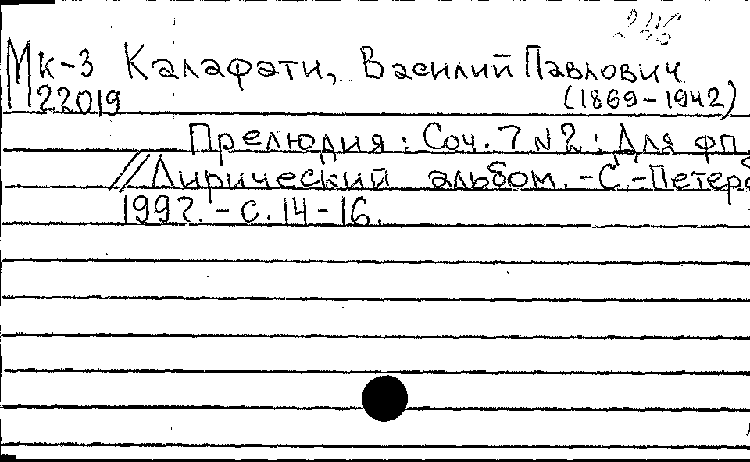 246
Мк-3 Калафати, Василий Павлович
М22019 (1869-1942)
Прелюдия: Соч. 7 №2: Для фп
//Лирический альбом. -С.-Петерб
1992. - с. 14-16.